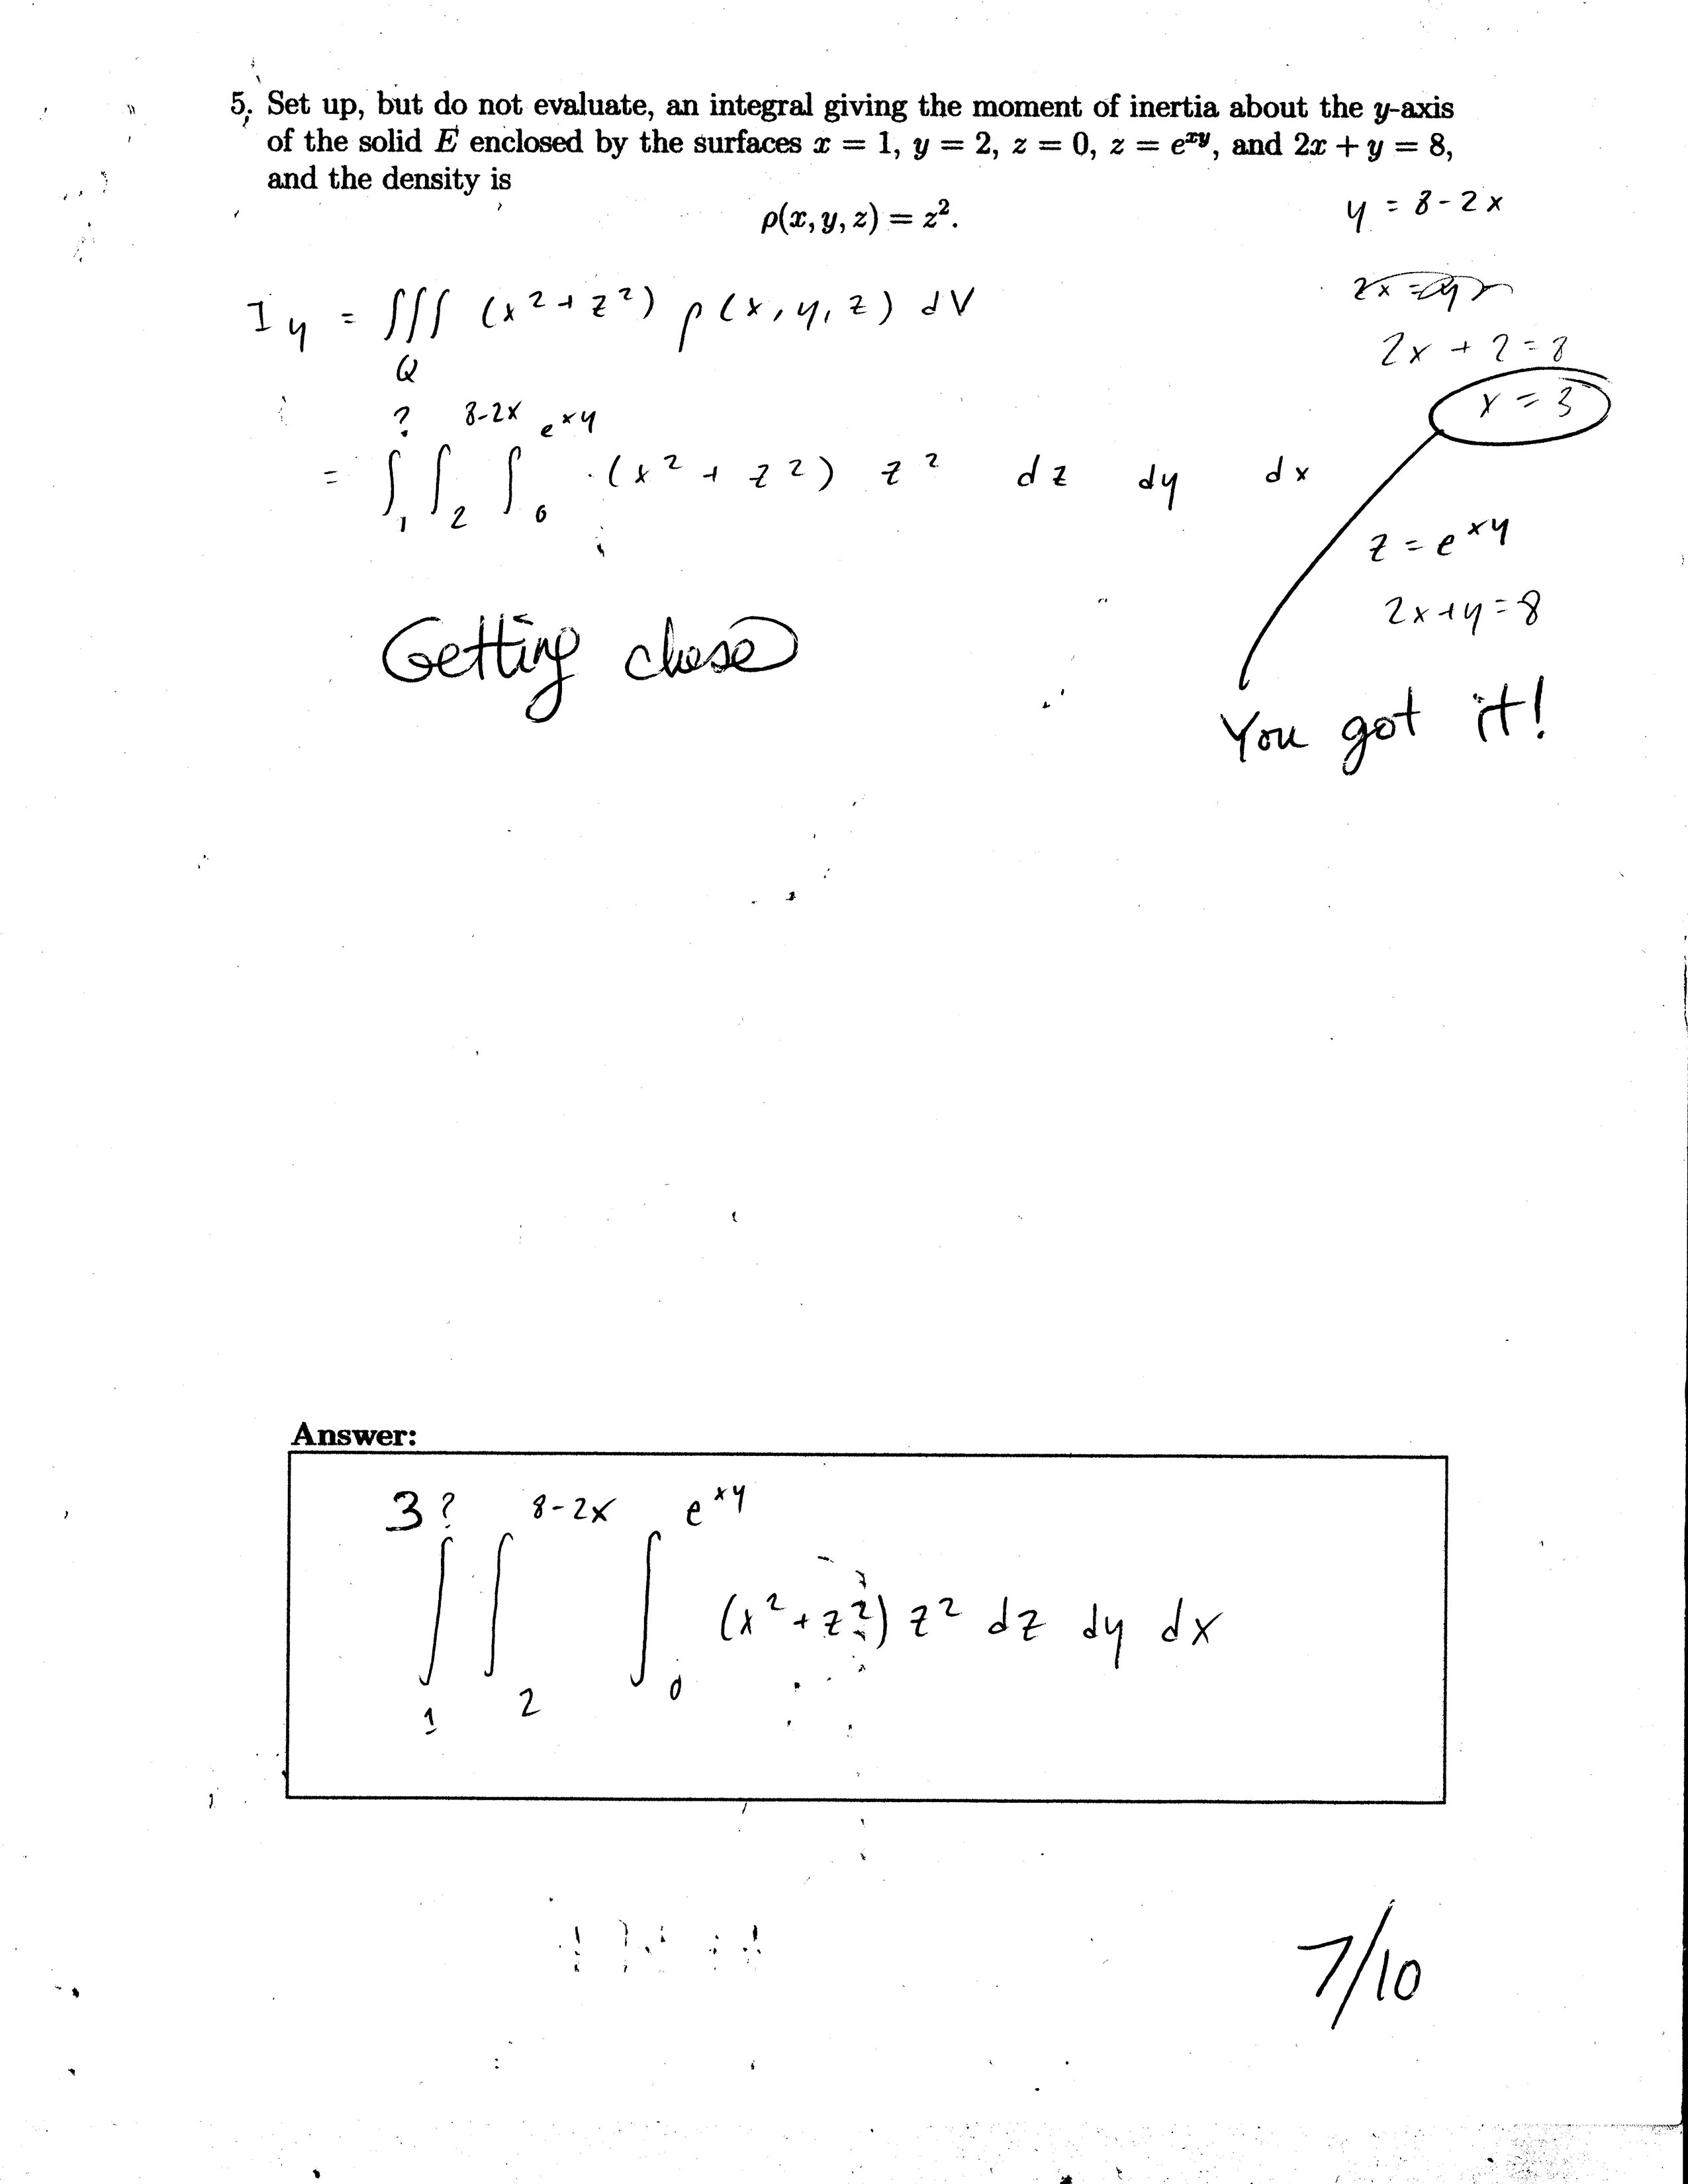 5. Set up, but do not evaluate, an integral giving the moment of inertia about the y-axis
of the solid E enclosed by the surfaces x = 1, y = 2, z = 0, z = e^{xy}, and 2x + y = 8,
and the density is
ρ(x, y, z) = z².
y = 8-2x
I_y = ∭_Q (x²+z²) ρ(x, y, z) dV
2x + 2 = 8
x = 3
= ∫_1^? ∫_2^{8-2x} ∫_0^{e^{xy}} (x² + z²) z² dz dy dx
z = e^{xy}
2x+y=8
Getting close
You got it!
Answer:
3? 8-2x e^{xy}
∫_1 ∫_2 ∫_0 (x²+z²) z² dz dy dx
7/10